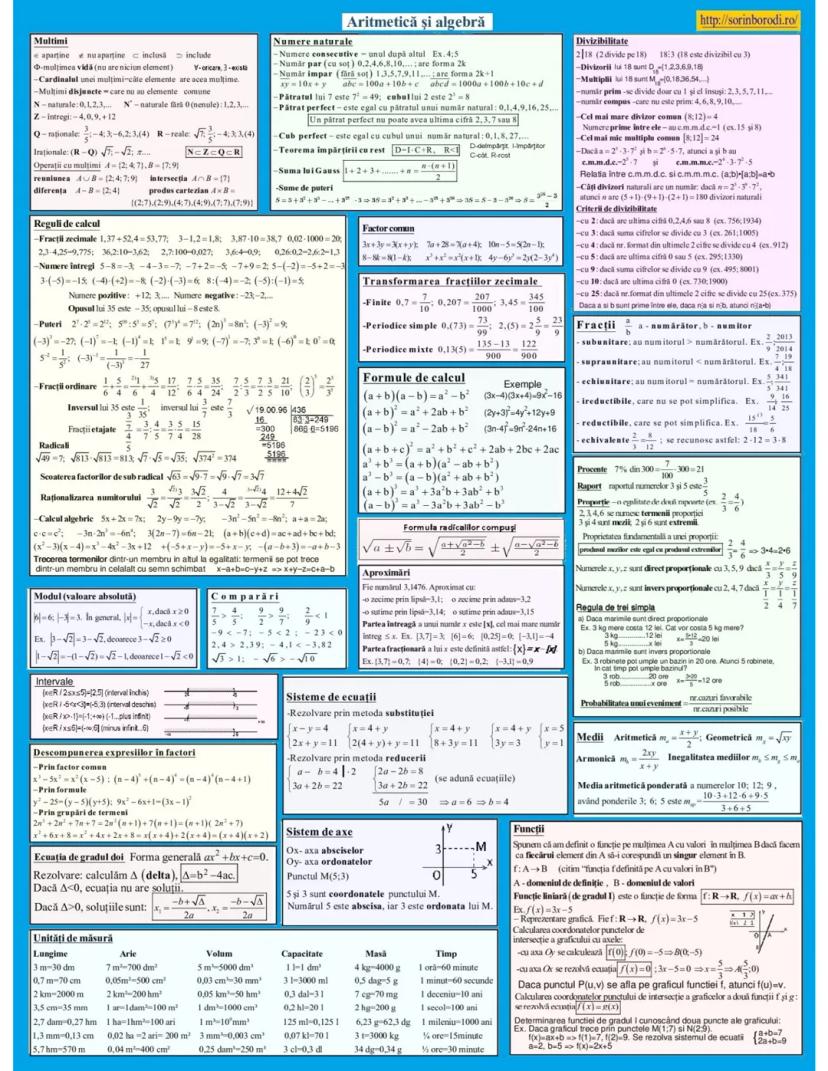 Aritmetică şi algebră
http://sorinborodi.ro/
Mulțimi
∈ aparține ∉ nu aparține ⊂ inclusă ⊃ include
Φ-mulțimea vidă (nu are niciun element) ∀-oricare, ∃-există
–Cardinalul unei mulțimi=câte elemente are acea mulțime.
–Mulțimi disjuncte = care nu au elemente comune
N – naturale: 0,1,2,3,... N* – naturale fără 0 (nenule): 1,2,3,...
Z – întregi: – 4, 0, 9, +12
Iraționale: (R – Q) √7; –√2; π....
N⊂Z⊂Q⊂R
Operații cu mulțimi A={2;4;7}, B={7;9}
reuniunea A∪B={2;4;7;9} intersecția A∩B={7}
diferența A–B={2;4} produs cartezian A×B=
{(2;7),(2;9),(4;7),(4;9),(7;7),(7;9)}
Numere naturale
–Numere consecutive = unul după altul Ex. 4; 5
–Număr par (cu soț) 0,2,4,6,8,10,...; are forma 2k
–Număr impar (fără soț) 1,3,5,7,9,11,...; are forma 2k+1
xy=10x+y abc=100a+10b+c abcd=1000a+100b+10c+d
–Pătratul lui 7 este 7²=49; cubul lui 2 este 2³=8
–Pătrat perfect – este egal cu pătratul unui număr natural: 0,1,4,9,16,25,...
Un pătrat perfect nu poate avea ultima cifră 2,3,7 sau 8
–Cub perfect – este egal cu cubul unui număr natural: 0,1,8,27,...
–Teorema împărțirii cu rest D=I·C+R, R<I D-deîmpărțit. I-împărțitor
C-cât. R-rost
–Suma lui Gauss 1+2+3+.......+n = n·(n+1)/2
-Sume de puteri
Divizibilitate
2|18 (2 divide pe 18) 18⋮3 (18 este divizibil cu 3)
–Divizorii lui 18 sunt D₁₈={1,2,3,6,9,18}
–Multiplii lui 18 sunt M₁₈={0,18,36,54,...}
–număr prim -se divide doar cu 1 şi el însuşi: 2, 3, 5, 7, 11,...
–număr compus -care nu este prim: 4, 6, 8, 9, 10,...
–Cel mai mare divizor comun (8;12) = 4
Numere prime între ele – au c.m.m.d.c.=1 (ex. 15 şi 8)
–Cel mai mic multiplu comun [8;12] = 24
Relatia între c.m.m.d.c. si c.m.m.m.c. (a;b)•[a;b]=a•b
atunci n are (5+1)·(9+1)·(2+1)=180 divizori naturali
Criterii de divizibilitate
–cu 2: dacă are ultima cifră 0,2,4,6 sau 8 (ex. 756;1934)
–cu 3: dacă suma cifrelor se divide cu 3 (ex. 261;1005)
–cu 4: dacă nr. format din ultimele 2 cifre se divide cu 4 (ex. 912)
–cu 5: dacă are ultima cifră 0 sau 5 (ex. 295;1330)
–cu 9: dacă suma cifrelor se divide cu 9 (ex. 495; 8001)
–cu 10: dacă are ultima cifră 0 (ex. 730;1900)
–cu 25: dacă nr.format din ultimele 2 cifre se divide cu 25 (ex. 375)
Reguli de calcul
–Fracții zecimale 1,37+52,4=53,77; 3–1,2=1,8; 3,87·10=38,7 0,02·1000=20;
2,3·4,25=9,775; 36,2:10=3,62; 2,7:100=0,027; 3,6:4=0,9; 0,26:0,2=2,6:2=1,3
–Numere întregi 5–8=–3; –4–3=–7; –7+2=–5; –7+9=2; 5–(–2)=–5+2=–3
3·(–5)=–15; (–4)·(+2)=–8; (–2)·(–3)=6; 8:(–4)=–2; (–5):(–1)=5;
Numere pozitive: +12; 3,.... Numere negative: –23;–2,...
Opusul lui 35 este –35; opusul lui –8 este 8.
–Fracții ordinare
Inversul lui 35 este 1/35; inversul lui 3/7 este 7/3
Fracții etajate
Radicali
√49=7; √813·√813=813; √7·√5=√35; √374²=374
Scoaterea factorilor de sub radical √63=√9·7=√9·√7=3√7
Raționalizarea numitorului
–Calcul algebric 5x+2x=7x; 2y–9y=–7y; –3n²–5n²=–8n²; a+a=2a;
c·c=c²; –3n·2n³=–6n⁴; 3(2n–7)=6n–21; (a+b)(c+d)=ac+ad+bc+bd;
(x²–3)(x–4)=x³–4x²–3x+12 +(–5+x–y)=–5+x–y; –(a–b+3)=–a+b–3
Trecerea termenilor dintr-un membru in altul la egalitati: termenii se pot trece
dintr-un membru in celalalt cu semn schimbat x–a+b=c–y+z => x+y–z=c+a–b
Factor comun
3x+3y=3(x+y); 7a+28=7(a+4); 10n–5=5(2n–1);
8–8k=8(1–k); x³+x²=x²(x+1); 4y–6y³=2y(2–3y²)
Transformarea fracțiilor zecimale
-Finite 0,7=7/10; 0,207=207/1000; 3,45=345/100
-Periodice simple 0,(73)=73/99; 2,(5)=2 5/9=23/9
-Periodice mixte 0,13(5)=135–13/900=122/900
Formule de calcul Exemple
(a+b)(a–b)=a²–b² (3x–4)(3x+4)=9x²–16
(a+b)²=a²+2ab+b² (2y+3)²=4y²+12y+9
(a–b)²=a²–2ab+b² (3n-4)²=9n²-24n+16
(a+b+c)²=a²+b²+c²+2ab+2bc+2ac
a³+b³=(a+b)(a²–ab+b²)
a³–b³=(a–b)(a²+ab+b²)
(a+b)³=a³+3a²b+3ab²+b³
(a–b)³=a³–3a²b+3ab²–b³
Formula radicalilor compuşi
Aproximări
Fie numărul 3,1476. Aproximat cu:
-o zecime prin lipsă=3,1; o zecime prin adaus=3,2
-o sutime prin lipsă=3,14; o sutime prin adaus=3,15
Partea întreagă a unui număr x este [x], cel mai mare număr
întreg ≤ x. Ex. [3,7]=3; [6]=6; [0,25]=0; [–3,1]=–4
Partea fracționară a lui x este definită astfel: {x}=x–[x].
Ex.{3,7}=0,7; {4}=0; {0,2}=0,2; {–3,1}=0,9
Fracții a/b a - numărător, b - numitor
- subunitare; au numitorul > numărătorul. Ex. 2/9; 2013/2014
- supraunitare; au numitorul < numărătorul. Ex. 7/4; 19/18
- echiunitare; au numitorul = numărătorul. Ex. 5/5; 341/341
- ireductibile, care nu se pot simplifica. Ex. 9/14; 16/25
- reductibile, care se pot simplifica. Ex.
- echivalente 2/3=8/12; se recunosc astfel: 2·12=3·8
Procente 7% din 300=7/100·300=21
Raport raportul numerelor 3 şi 5 este 3/5
Proporție – o egalitate de două rapoarte (ex. 2/3=4/6)
2,3,4,6 se numesc termenii proporției
3 şi 4 sunt mezii; 2 şi 6 sunt extremii.
Proprietatea fundamentală a unei proporții:
produsul mezilor este egal cu produsul extremilor 2/3=4/6 => 3•4=2•6
Numerele x,y,z sunt direct proporționale cu 3, 5, 9 dacă x/3=y/5=z/9
Numerele x,y,z sunt invers proporționale cu 2, 4, 7 dacă
Regula de trei simpla
a) Daca marimile sunt direct proportionale
Ex. 3 kg mere costa 12 lei. Cat vor costa 5 kg mere?
3 kg..............12 lei
5 kg..................x lei x=5•12/3=20 lei
b) Daca marimile sunt invers proportionale
Ex. 3 robinete pot umple un bazin in 20 ore. Atunci 5 robinete,
In cat timp pot umple bazinul?
3 rob.............20 ore
5 rob...............x ore x=3•20/5=12 ore
Probabilitatea unui eveniment = nr.cazuri favorabile/nr.cazuri posibile
Modul (valoare absolută)
|6|=6; |–3|=3. În general, |x|={x, dacă x≥0
–x, dacă x<0
Ex. |3–√2|=3–√2, deoarece 3–√2≥0
|1–√2|=–(1–√2)=√2–1, deoarece 1–√2<0
Comparări
7/5>4/5; 9/2>9/7; 2/9<1
–9<–7; –5<2; –23<0
2,4>2,39; –4,1<–3,82
√3>1; –√6>–√10
Intervale
{x∈R / 2≤x≤5}=[2;5] (interval închis)
{x∈R / -5<x<3}=(-5;3) (interval deschis)
Descompunerea expresiilor în factori
–Prin factor comun
x³–5x²=x²(x–5); (n–4)⁵+(n–4)⁴=(n–4)⁴(n–4+1)
–Prin formule
y²–25=(y–5)(y+5); 9x²–6x+1=(3x–1)²
–Prin grupări de termeni
2n³+2n²+7n+7=2n²(n+1)+7(n+1)=(n+1)(2n²+7)
x²+6x+8=x²+4x+2x+8=x(x+4)+2(x+4)=(x+4)(x+2)
Ecuația de gradul doi Forma generală ax²+bx+c=0.
Rezolvare: calculăm Δ (delta), Δ=b²–4ac.
Dacă Δ<0, ecuația nu are soluții.
Dacă Δ>0, soluțiile sunt: x₁=–b+√Δ/2a, x₂=–b–√Δ/2a
Sisteme de ecuații
-Rezolvare prin metoda substituției
x–y=4 x=4+y x=4+y x=4+y x=5
2x+y=11 2(4+y)+y=11 8+3y=11 3y=3 y=1
-Rezolvare prin metoda reducerii
a–b=4 |·2 2a–2b=8
3a+2b=22 3a+2b=22 (se adună ecuațiile)
5a / =30 ⇒a=6⇒b=4
Sistem de axe
Ox- axa absciselor
Oy- axa ordonatelor
Punctul M(5;3)
y
3
M
x
O
5
5 şi 3 sunt coordonatele punctului M.
Numărul 5 este abscisa, iar 3 este ordonata lui M.
Medii Aritmetică mₐ=x+y/2; Geometrică m_g=√xy
Armonică m_h=2xy/x+y Inegalitatea mediilor m_h≤m_g≤mₐ
Media aritmetică ponderată a numerelor 10; 12; 9,
având ponderile 3; 6; 5 este m_ap=10·3+12·6+9·5/3+6+5
Funcții
Spunem că am definit o funcție pe mulțimea A cu valori în mulțimea B dacă facem
ca fiecărui element din A să-i corespundă un singur element în B.
f:A→B (citim “funcția f definită pe A cu valori în B”)
A - domeniul de definiție, B - domeniul de valori
Funcție liniară (de gradul I) este o funcție de forma f:R→R, f(x)=ax+b.
Ex. f(x)=3x–5
– Reprezentare grafică. Fie f:R→R, f(x)=3x–5
Calcularea coordonatelor punctelor de
intersecție a graficului cu axele:
-cu axa Oy se calculează f(0); f(0)=–5⇒B(0;–5)
-cu axa Ox se rezolvă ecuația f(x)=0; 3x–5=0⇒x=5/3⇒A(5/3;0)
Daca punctul P(u,v) se afla pe graficul functiei f, atunci f(u)=v.
Calcularea coordonatelor punctului de intersecție a graficelor a două funcții f şi g:
se rezolvă ecuația f(x)=g(x)
Determinarea functiei de gradul I cunoscând doua puncte ale graficului:
Ex. Daca graficul trece prin punctele M(1;7) si N(2;9).
f(x)=ax+b => f(1)=7, f(2)=9. Se rezolva sistemul de ecuatii {a+b=7
2a+b=9
a=2, b=5 => f(x)=2x+5
Unități de măsură
Lungime Arie Volum Capacitate Masă Timp
3 m=30 dm 7 m²=700 dm² 5 m³=5000 dm³ 1 l=1 dm³ 4 kg=4000 g 1 oră=60 minute
0,7 m=70 cm 0,05m²=500 cm² 0,03 cm³=30 mm³ 3 l=3000 ml 0,5 dag=5 g 1 minut=60 secunde
2 km=2000 m 2 km²=200 hm² 0,05 km³=50 hm³ 0,3 dal=3 l 7 cg=70 mg 1 deceniu=10 ani
3,5 cm=35 mm 1 ar=1dam²=100 m² 1 dm³=1000 cm³ 0,2 hl=20 l 2 hg=200 g 1 secol=100 ani
2,7 dam=0,27 hm 1 ha=1hm²=100 ari 1 m³=10⁹mm³ 125 ml=0,125 l 6,23 g=62,3 dg 1 mileniu=1000 ani
1,3 mm=0,13 cm 0,02 ha=2 ari= 200 m² 3 mm³=0,003 cm³ 0,07 kl=70 l 3 t=3000 kg ¼ ore=15minute
5,7 hm=570 m 0,04 m²=400 cm² 0,25 dam³=250 m³ 3 cl=0,3 dl 34 dg=0,34 g ½ ore=30 minute